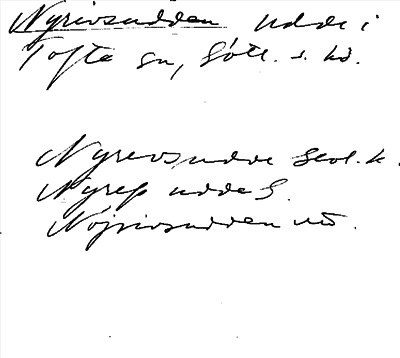 Nyrivsudden udde i
Tofta sn, Gotl. s. hd.
Nyrevsudde Geol. k.
Nyrep udde S.
Nöjrivsudden uö.